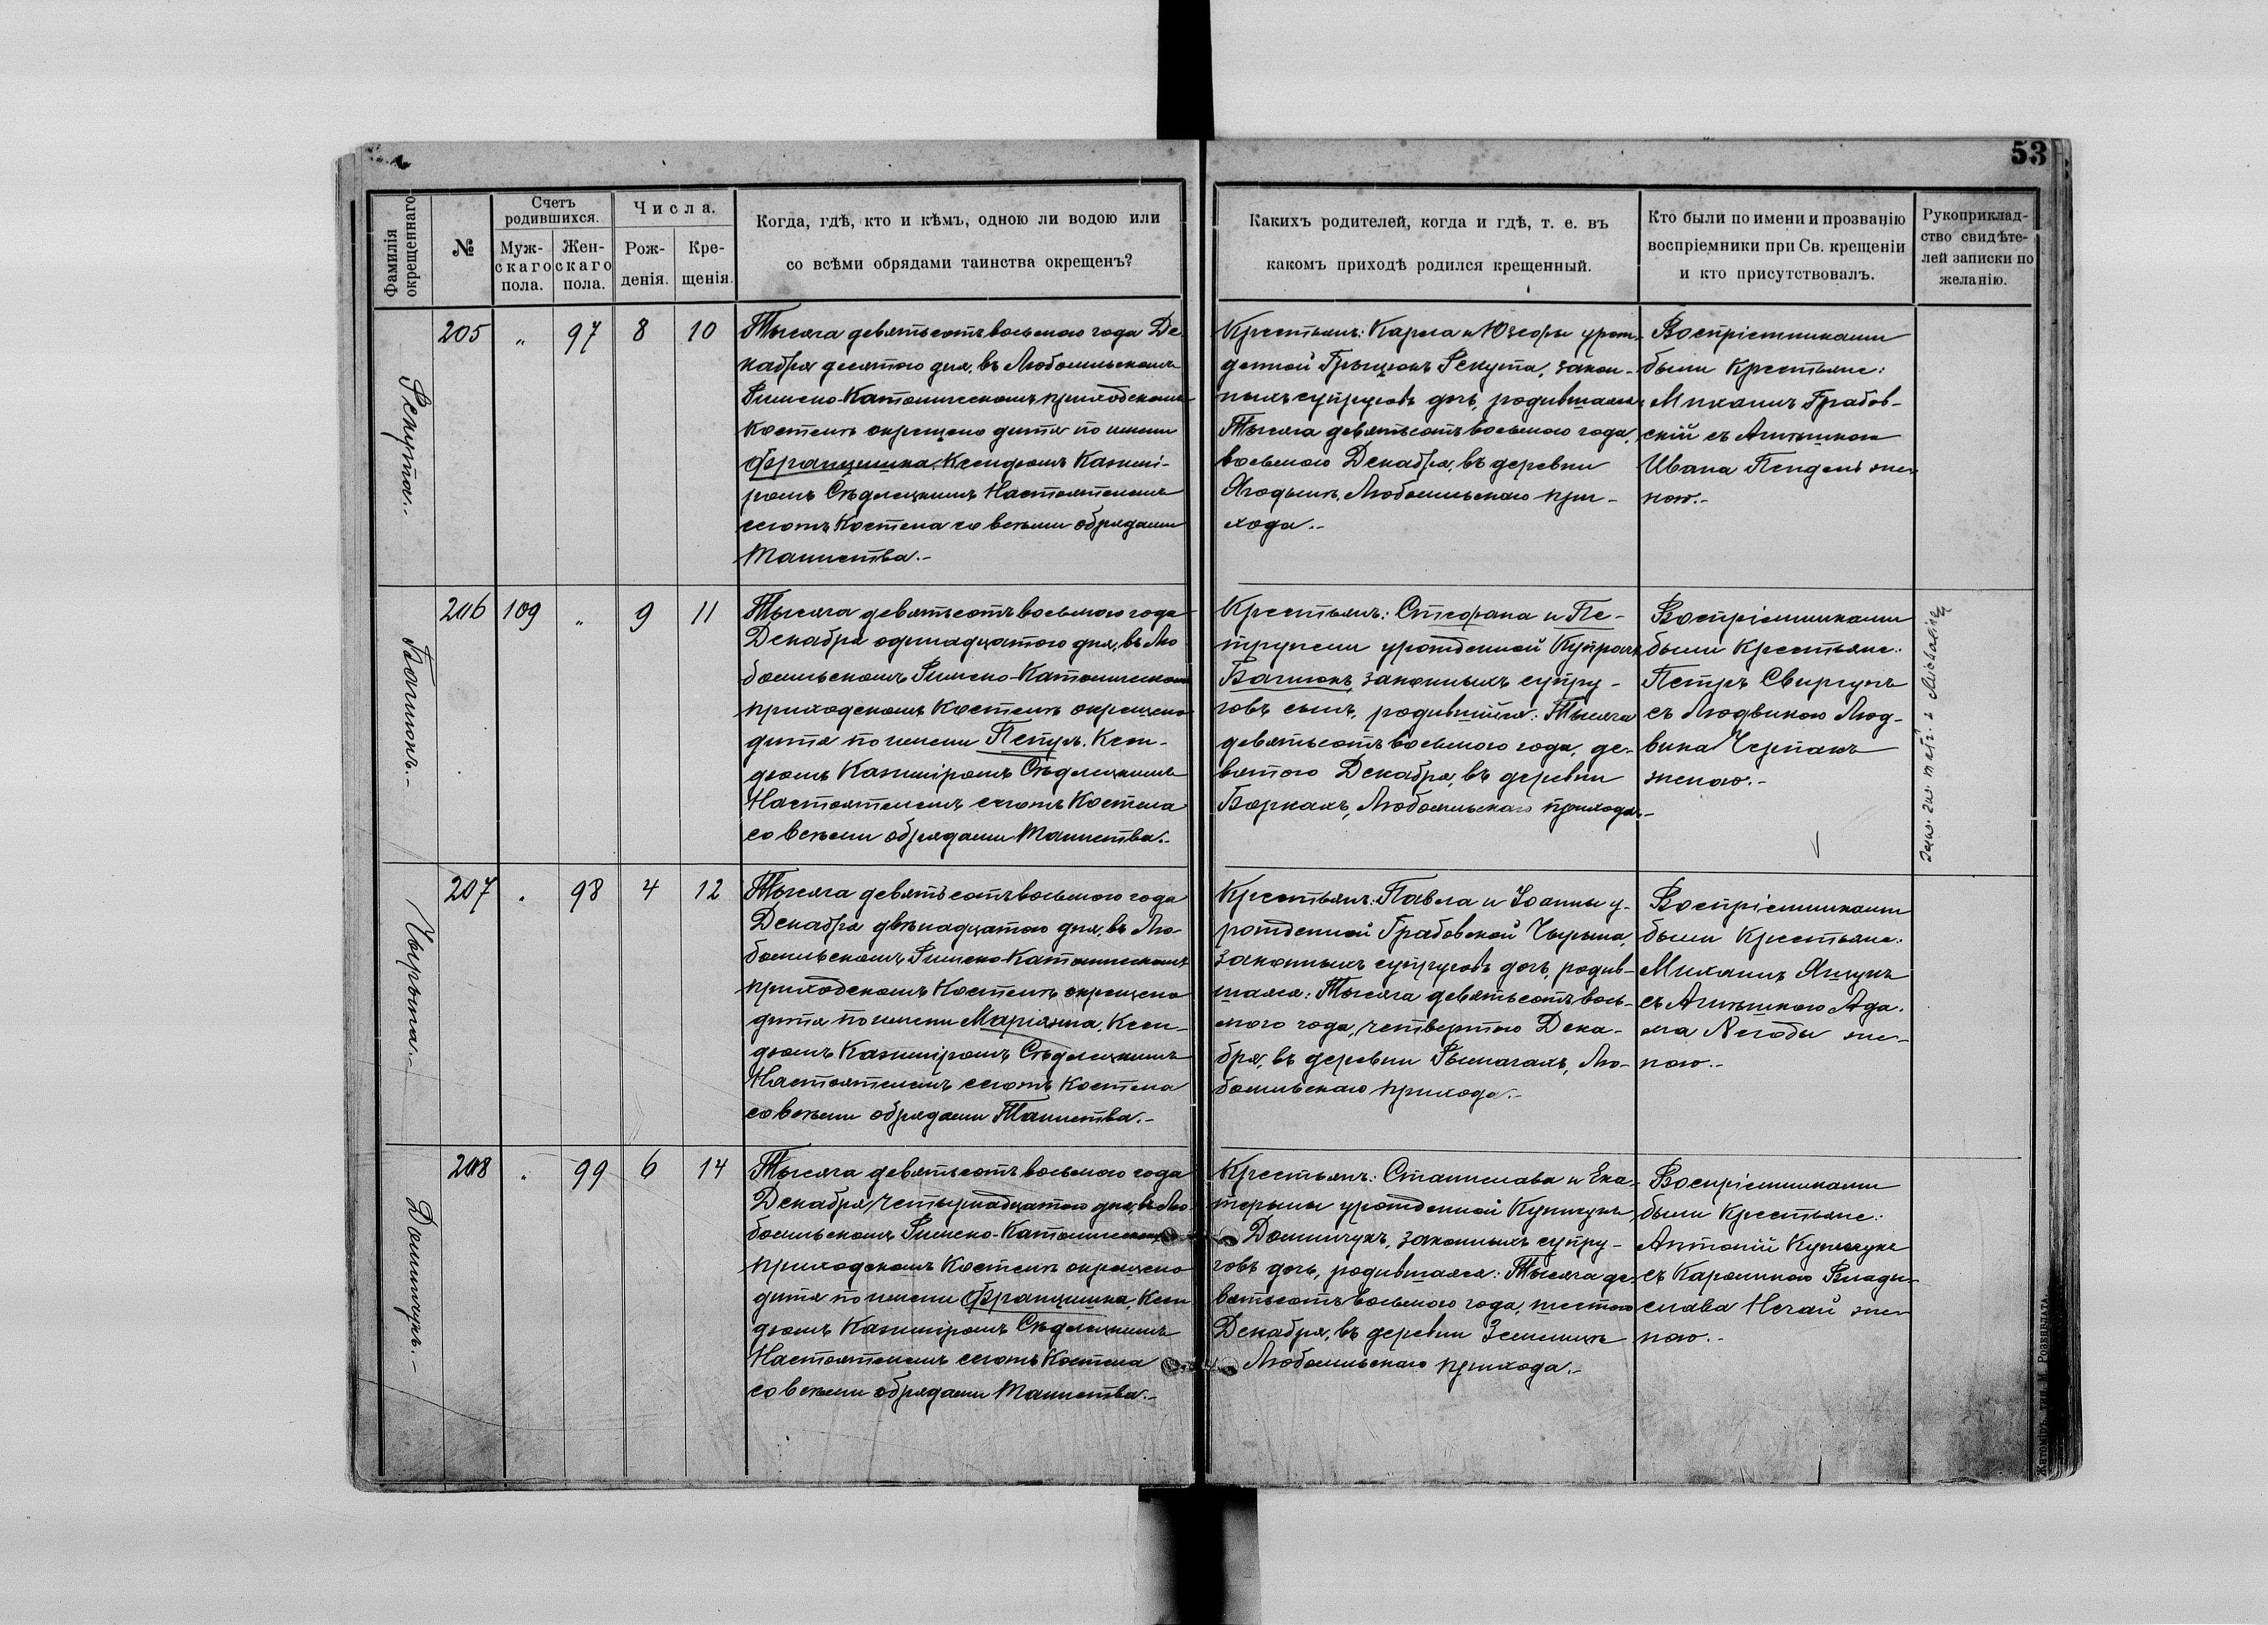 53
Фамилія окрещеннаго.
№
Счетъ родившихся.
Муж-
скаго
пола.
Жен-
скаго
пола.
Числа.
Рож-
денія.
Кре-
щенія.
Когда, гдѣ, кто и кѣмъ, одною ли водою или
со всѣми обрядами таинства окрещенъ?
Какихъ родителей, когда и гдѣ, т. е. въ
какомъ приходѣ родился крещенный.
Кто были по имени и прозванію
воспріемники при Св. крещеніи
и кто присутствовалъ.
Рукоприклад-
ство свидѣте-
лей записки по
желанію.
Рекута.-
205 " 97 8 10
Тысяча девятьсотъ восьмого года Де-
кабря десятого дня, въ Любомльскомъ
Римско-Католическомъ приходскомъ
Костелѣ окрещено дитя по имени
Францишка, Ксендзомъ Казимі-
ромъ Сѣдлецкимъ Настоятелемъ
сегожъ Костела со всѣми обрядами
Таинства.-
Крестьянъ: Карла и Юзефы урож-
денной Грыцюкъ Рекута, закон-
ныхъ супруговъ дочь, родившаяся:
Тысяча девятьсотъ восьмого года,
восьмого Декабря, въ деревни
Ягодынѣ, Любомльскаго при-
хода.-
Воспріемниками
были Крестьяне:
Михаилъ Грабов-
скій съ
Ивана же-
ною.-
Багнюкъ.-
206 109 " 9 11
Тысяча девятьсотъ восьмого года
Декабря одинадцатого дня, въ Лю-
бомльскомъ Римско-Католическомъ
приходскомъ Костелѣ окрещено
дитя по имени Петръ, Ксен-
дзомъ Казиміромъ Сѣдлецкимъ
Настоятелемъ сегожъ Костела
со всѣми обрядами Таинства.-
Крестьянъ: Стефана и Пе-
трунели урожденной
законныхъ супру-
говъ сынъ, родившійся: Тысяча
девятьсотъ восьмого года, де-
вятого Декабря, въ деревни
Боркахъ, Любомльскаго прихода.-
Воспріемниками
были Крестьяне:
Петръ Свиргунъ
съ Людвикою Люд-
вика Черпакъ
женою.-
Чырына.-
207 . 98 4 12
Тысяча девятьсотъ восьмого года
Декабря двѣнадцатого дня, въ Лю-
бомльскомъ Римско-Католическомъ
приходскомъ Костелѣ окрещено
дитя по имени Маріянна, Ксен-
дзомъ Казиміромъ Сѣдлецкимъ
Настоятелемъ сегожъ Костела
со всѣми обрядами Таинства.-
Крестьянъ: Павла и Іоанны у-
рожденной Грабовской Чырына,
законныхъ супруговъ дочь, родив-
шаяся: Тысяча девятьсотъ вось-
мого года, четвертого Дека-
бря, въ деревни Рымачахъ, Лю-
бомльскаго прихода.-
Воспріемниками
были Крестьяне:
Михаилъ Ящукъ
съ Ада-
ма же-
ною.-
Доминчукъ.-
208 . 99 6 14
Тысяча девятьсотъ восьмого года
Декабря четырнадцатого дня, въ Лю-
бомльскомъ Римско-Католическомъ
приходскомъ Костелѣ окрещено
дитя по имени Францишка, Ксен-
дзомъ Казиміромъ Сѣдлецкимъ
Настоятелемъ сегожъ Костела
со всѣми обрядами Таинства.-
Крестьянъ: Станислава и Ека-
терыны урожденной
Доминчукъ, законныхъ супру-
говъ дочь, родившаяся: Тысяча де-
вятьсотъ восьмого года, шестого
Декабря, въ деревни Землицѣ
Любомльскаго прихода.-
Воспріемниками
были Крестьяне:
Антоній
съ Каролиною Влади-
слава Нечай же-
ною.-
Житоміръ, тип. М. Розенблата.